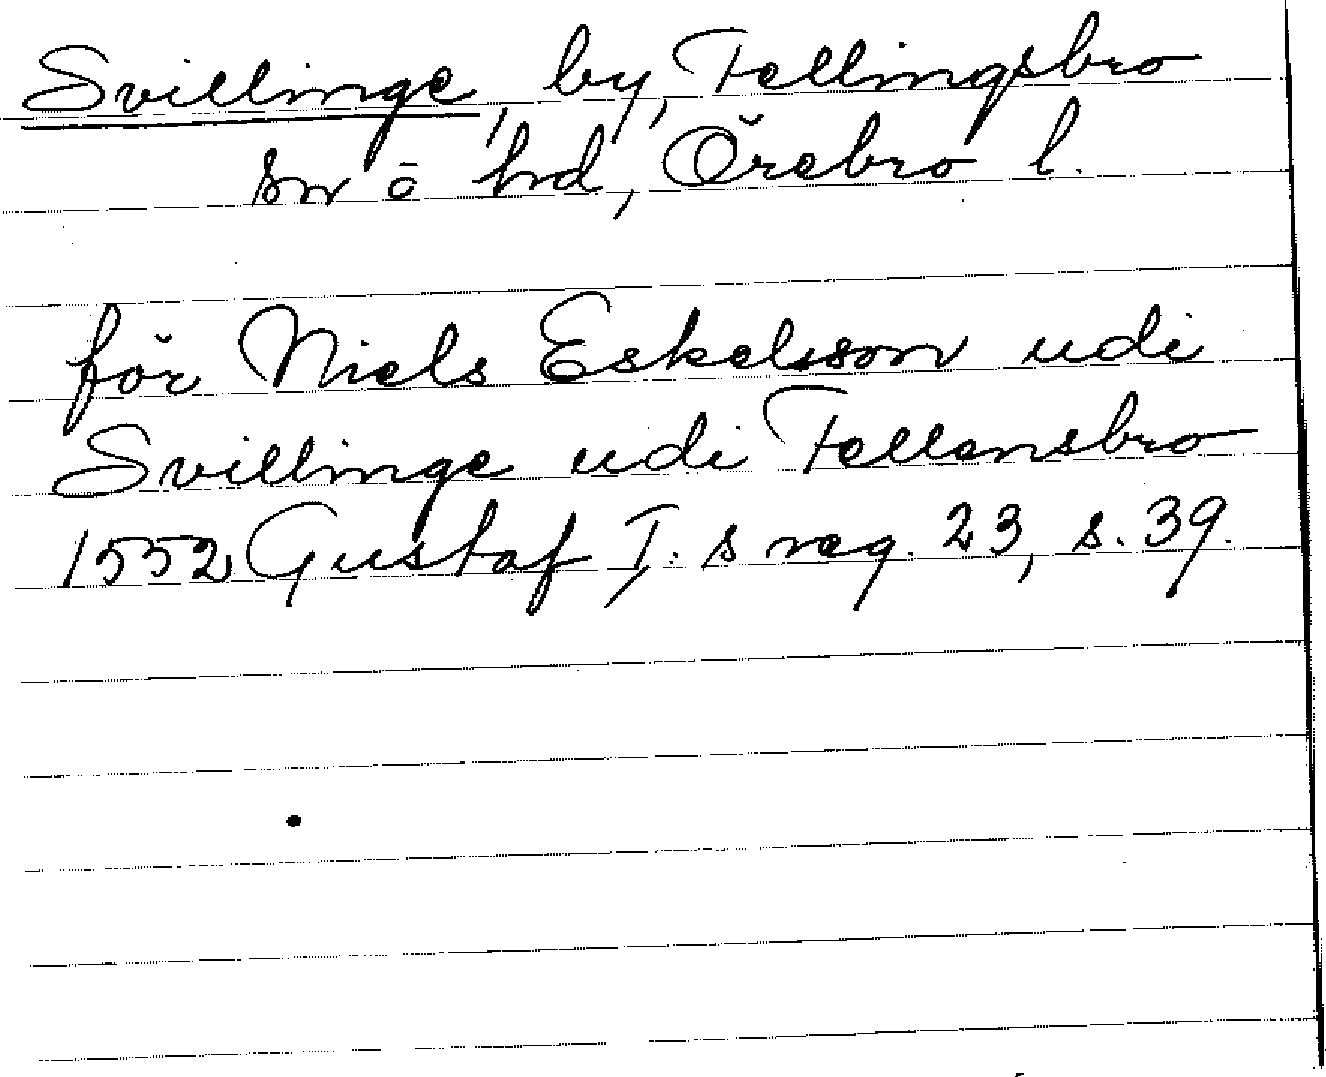 Svillinge, by, Fellingsbro
sn o hd, Örebro l.
för Niels Eskelsson udi
Svillinge udi Fellensbro
1552 Gustaf I:s reg. 23, s. 39.